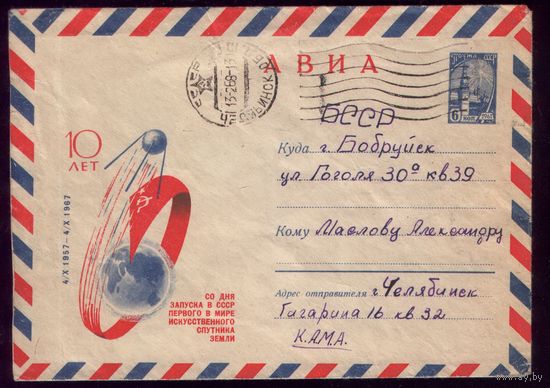 АВИА
ПОЧТА СССР
6 КОП.
ЧЕЛЯБИНСК
13-2 68-13
БССР
10
ЛЕТ
4/X 1957 — 4/X 1967
Куда г. Бобруйск
ул Гоголя 30º кв 39
Кому Маслову Александру
Адрес отправителя г Челябинск
Гагарина 16 кв 32
К.А.М.А.
СО ДНЯ
ЗАПУСКА В СССР
ПЕРВОГО В МИРЕ
ИСКУССТВЕННОГО
СПУТНИКА
ЗЕМЛИ
www.ay.by